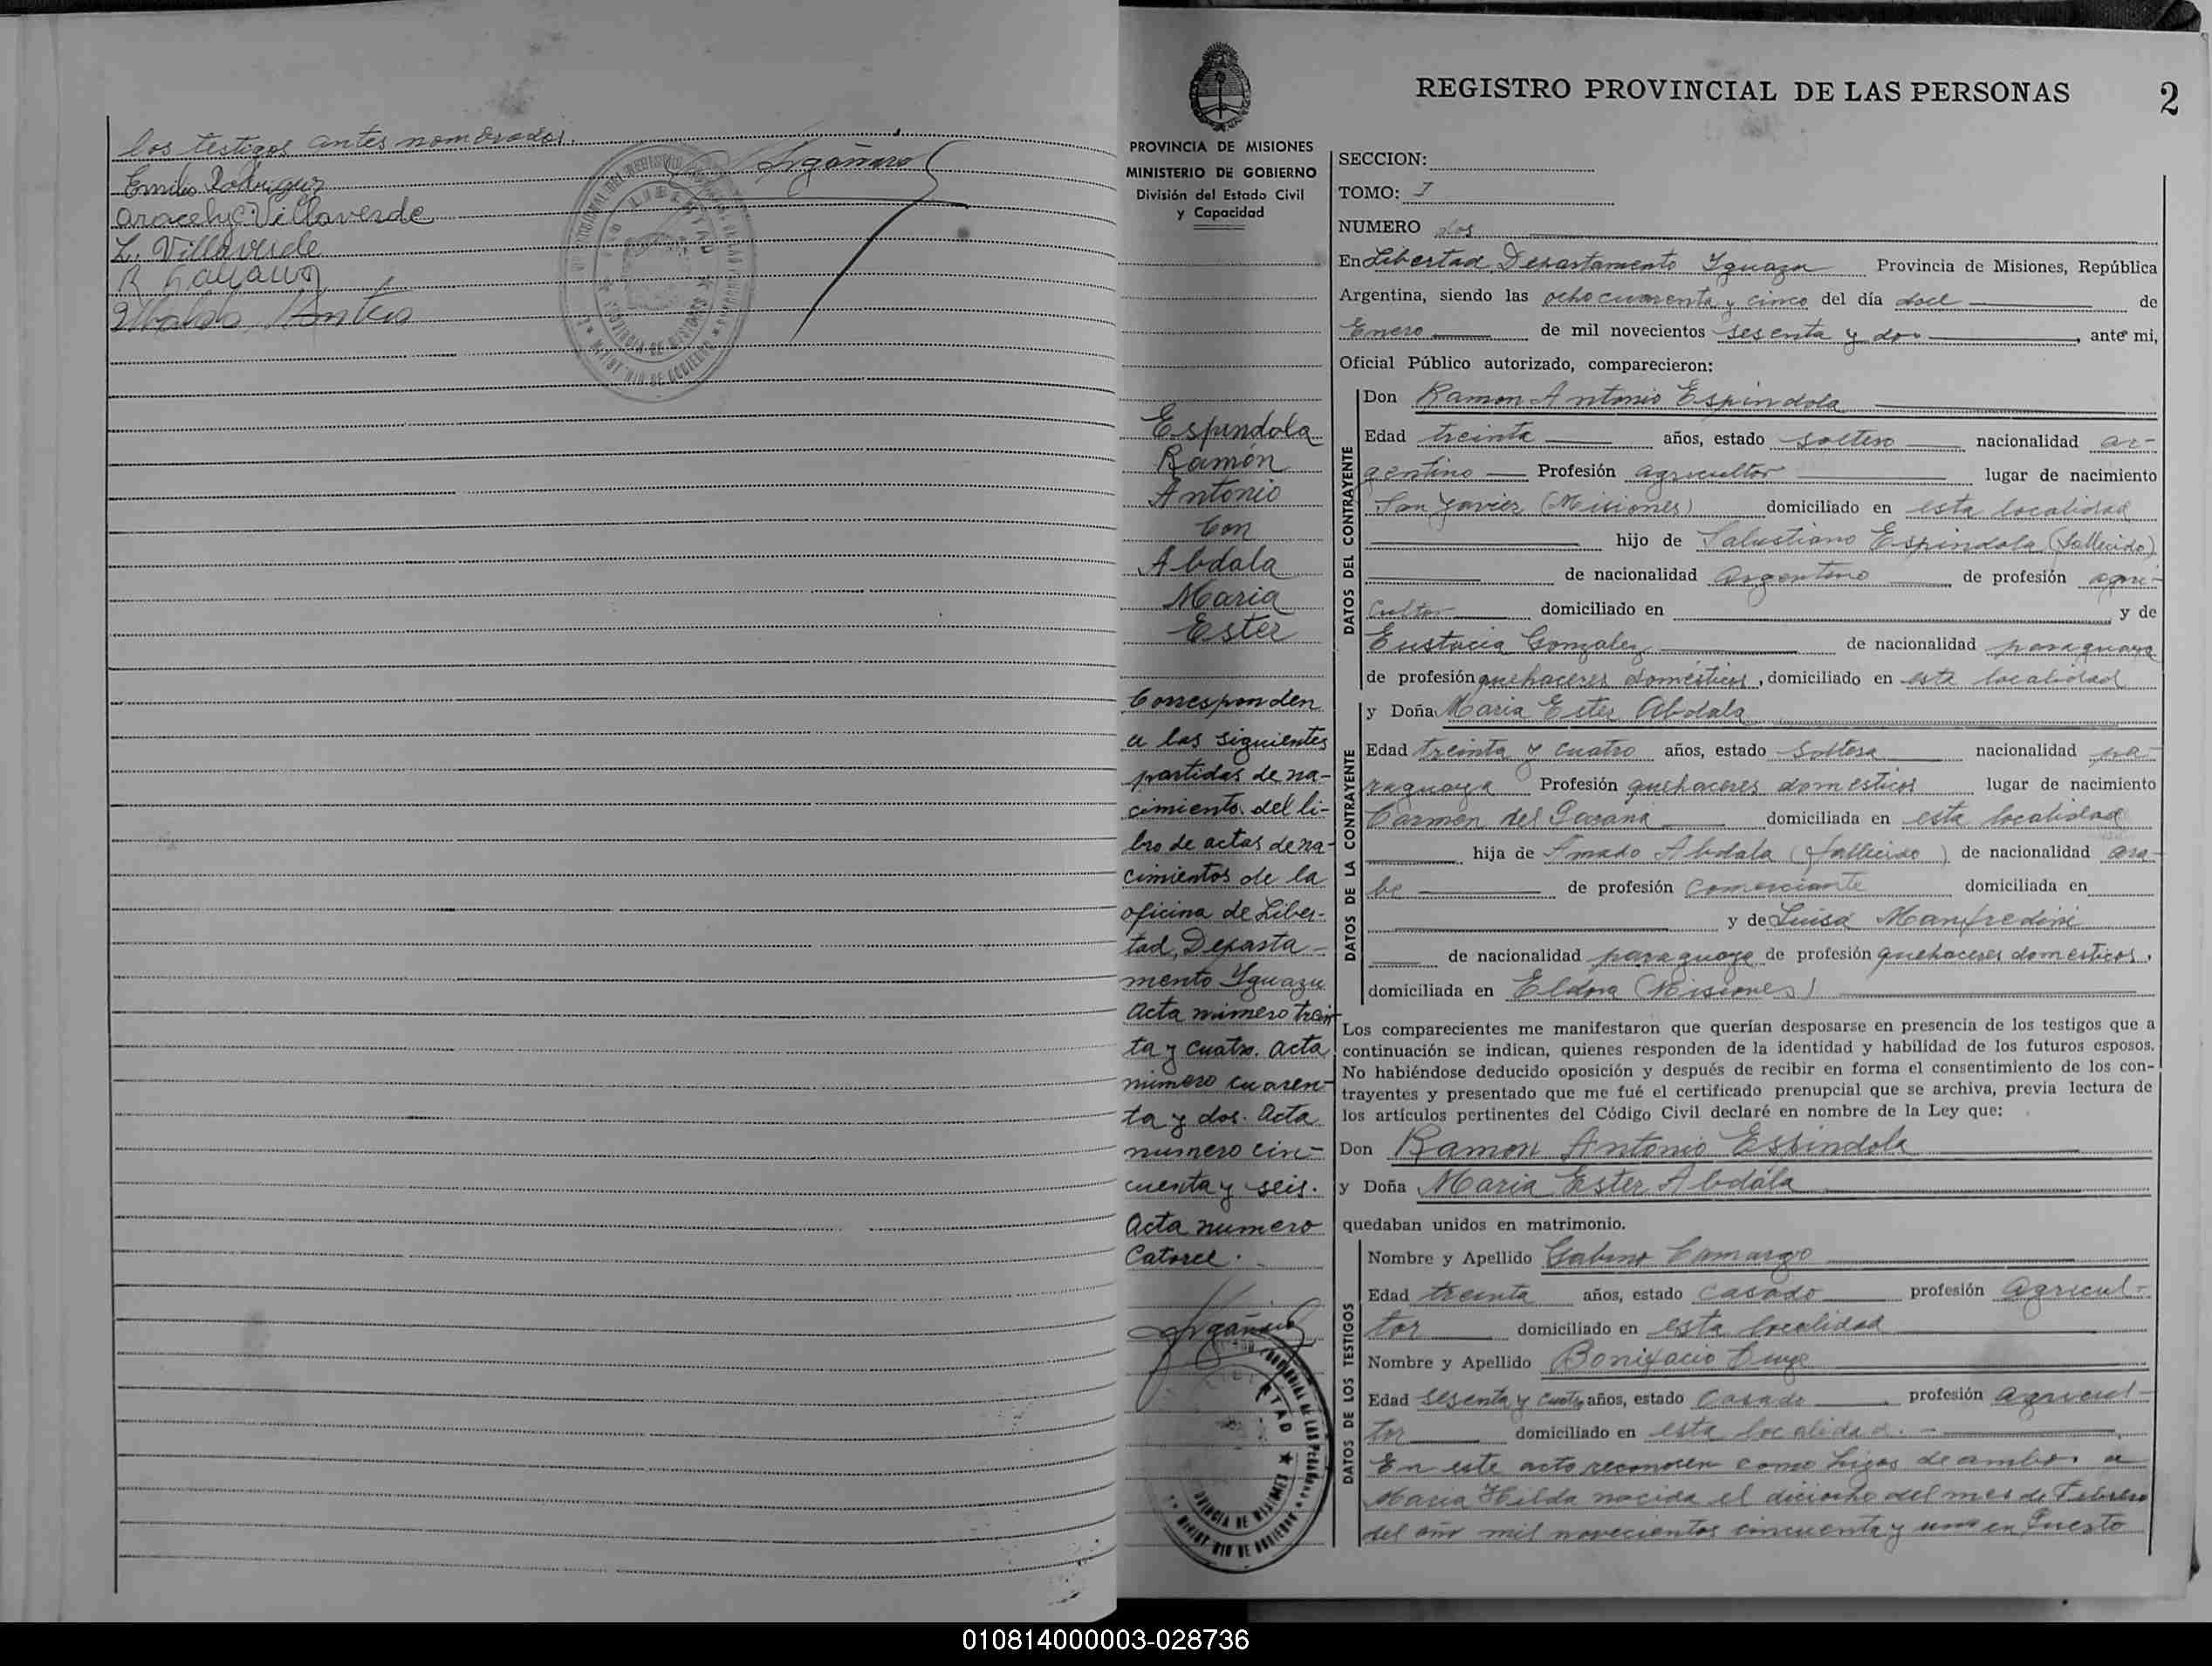 los testigos antes nombrados.
Emilio Rodriguez
Aracely C. Villaverde
L. Villaverde
REGISTRO PROVINCIAL DE LAS PERSONAS
2
PROVINCIA DE MISIONES
MINISTERIO DE GOBIERNO
División del Estado Civil
y Capacidad
Espindola
Ramon
Antonio
Con
Abdala
Maria
Ester
Corresponden
a las siguientes
partidas de na-
cimiento del li-
bro de actas de na-
cimientos de la
oficina de Liber-
tad, Departa-
mento Yguazu
Acta numero trein
ta y cuatro. Acta
numero cuaren-
ta y dos. Acta
numero cin-
cuenta y seis.
Acta numero
Catorce.
SECCION:
TOMO: I
NUMERO dos
En Libertad, Departamento Yguazu Provincia de Misiones, República
Argentina, siendo las ocho cuarenta y cinco del día doce de
Enero de mil novecientos sesenta y dos, ante mi,
Oficial Público autorizado, comparecieron:
DATOS DEL CONTRAYENTE
Don Ramon Antonio Espindola
Edad treinta años, estado soltero nacionalidad ar-
gentino Profesión agricultor lugar de nacimiento
San Javier (Misiones) domiciliado en esta localidad
hijo de Salustiano Espindola (fallecido)
de nacionalidad Argentino de profesión agri-
cultor domiciliado en y de
Eustacia Gonzalez de nacionalidad paraguaya
de profesión quehaceres domésticos, domiciliado en esta localidad
DATOS DE LA CONTRAYENTE
y Doña Maria Ester Abdala
Edad treinta y cuatro años, estado soltera nacionalidad pa-
raguaya Profesión quehaceres domesticos lugar de nacimiento
Carmen del Parana domiciliada en esta localidad
hija de Amado Abdala (fallecido) de nacionalidad ara-
be de profesión comerciante domiciliada en
y de Luisa Manfredini
de nacionalidad paraguaya de profesión quehaceres domesticos,
domiciliada en (Misiones)
Los comparecientes me manifestaron que querían desposarse en presencia de los testigos que a
continuación se indican, quienes responden de la identidad y habilidad de los futuros esposos.
No habiéndose deducido oposición y después de recibir en forma el consentimiento de los con-
trayentes y presentado que me fué el certificado prenupcial que se archiva, previa lectura de
los artículos pertinentes del Código Civil declaré en nombre de la Ley que:
Don Ramon Antonio Espindola
y Doña Maria Ester Abdala
quedaban unidos en matrimonio.
DATOS DE LOS TESTIGOS
Nombre y Apellido Gabino Camargo
Edad treinta años, estado casado profesión agricul-
tor domiciliado en esta localidad
Nombre y Apellido Bonifacio
Edad sesenta y cuatro años, estado casado profesión agricul-
tor domiciliado en esta localidad.
En este acto reconocen como hijos de ambos a
Maria Hilda nacida el dieciocho del mes de Febrero
del año mil novecientos cincuenta y uno en Puerto
010814000003-028736